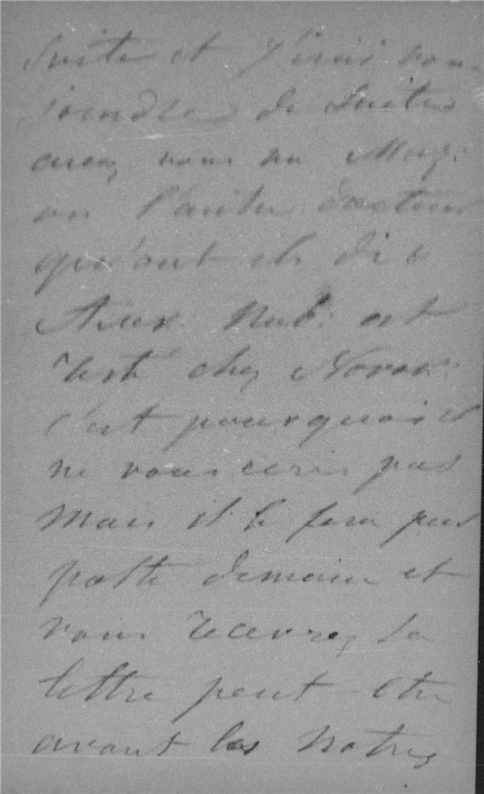 suite et j'irais vous
joindre de suite
avez vous vu Mug:
ou l'autre docteur
qu'ont ils dit
Aux. Nub. est
resté chez Novar:
c'est pourquoi il
ne vous ecris pas
Mais il le fera par
poste demain et
vous recevrez sa
lettre peut etre
avant les notres